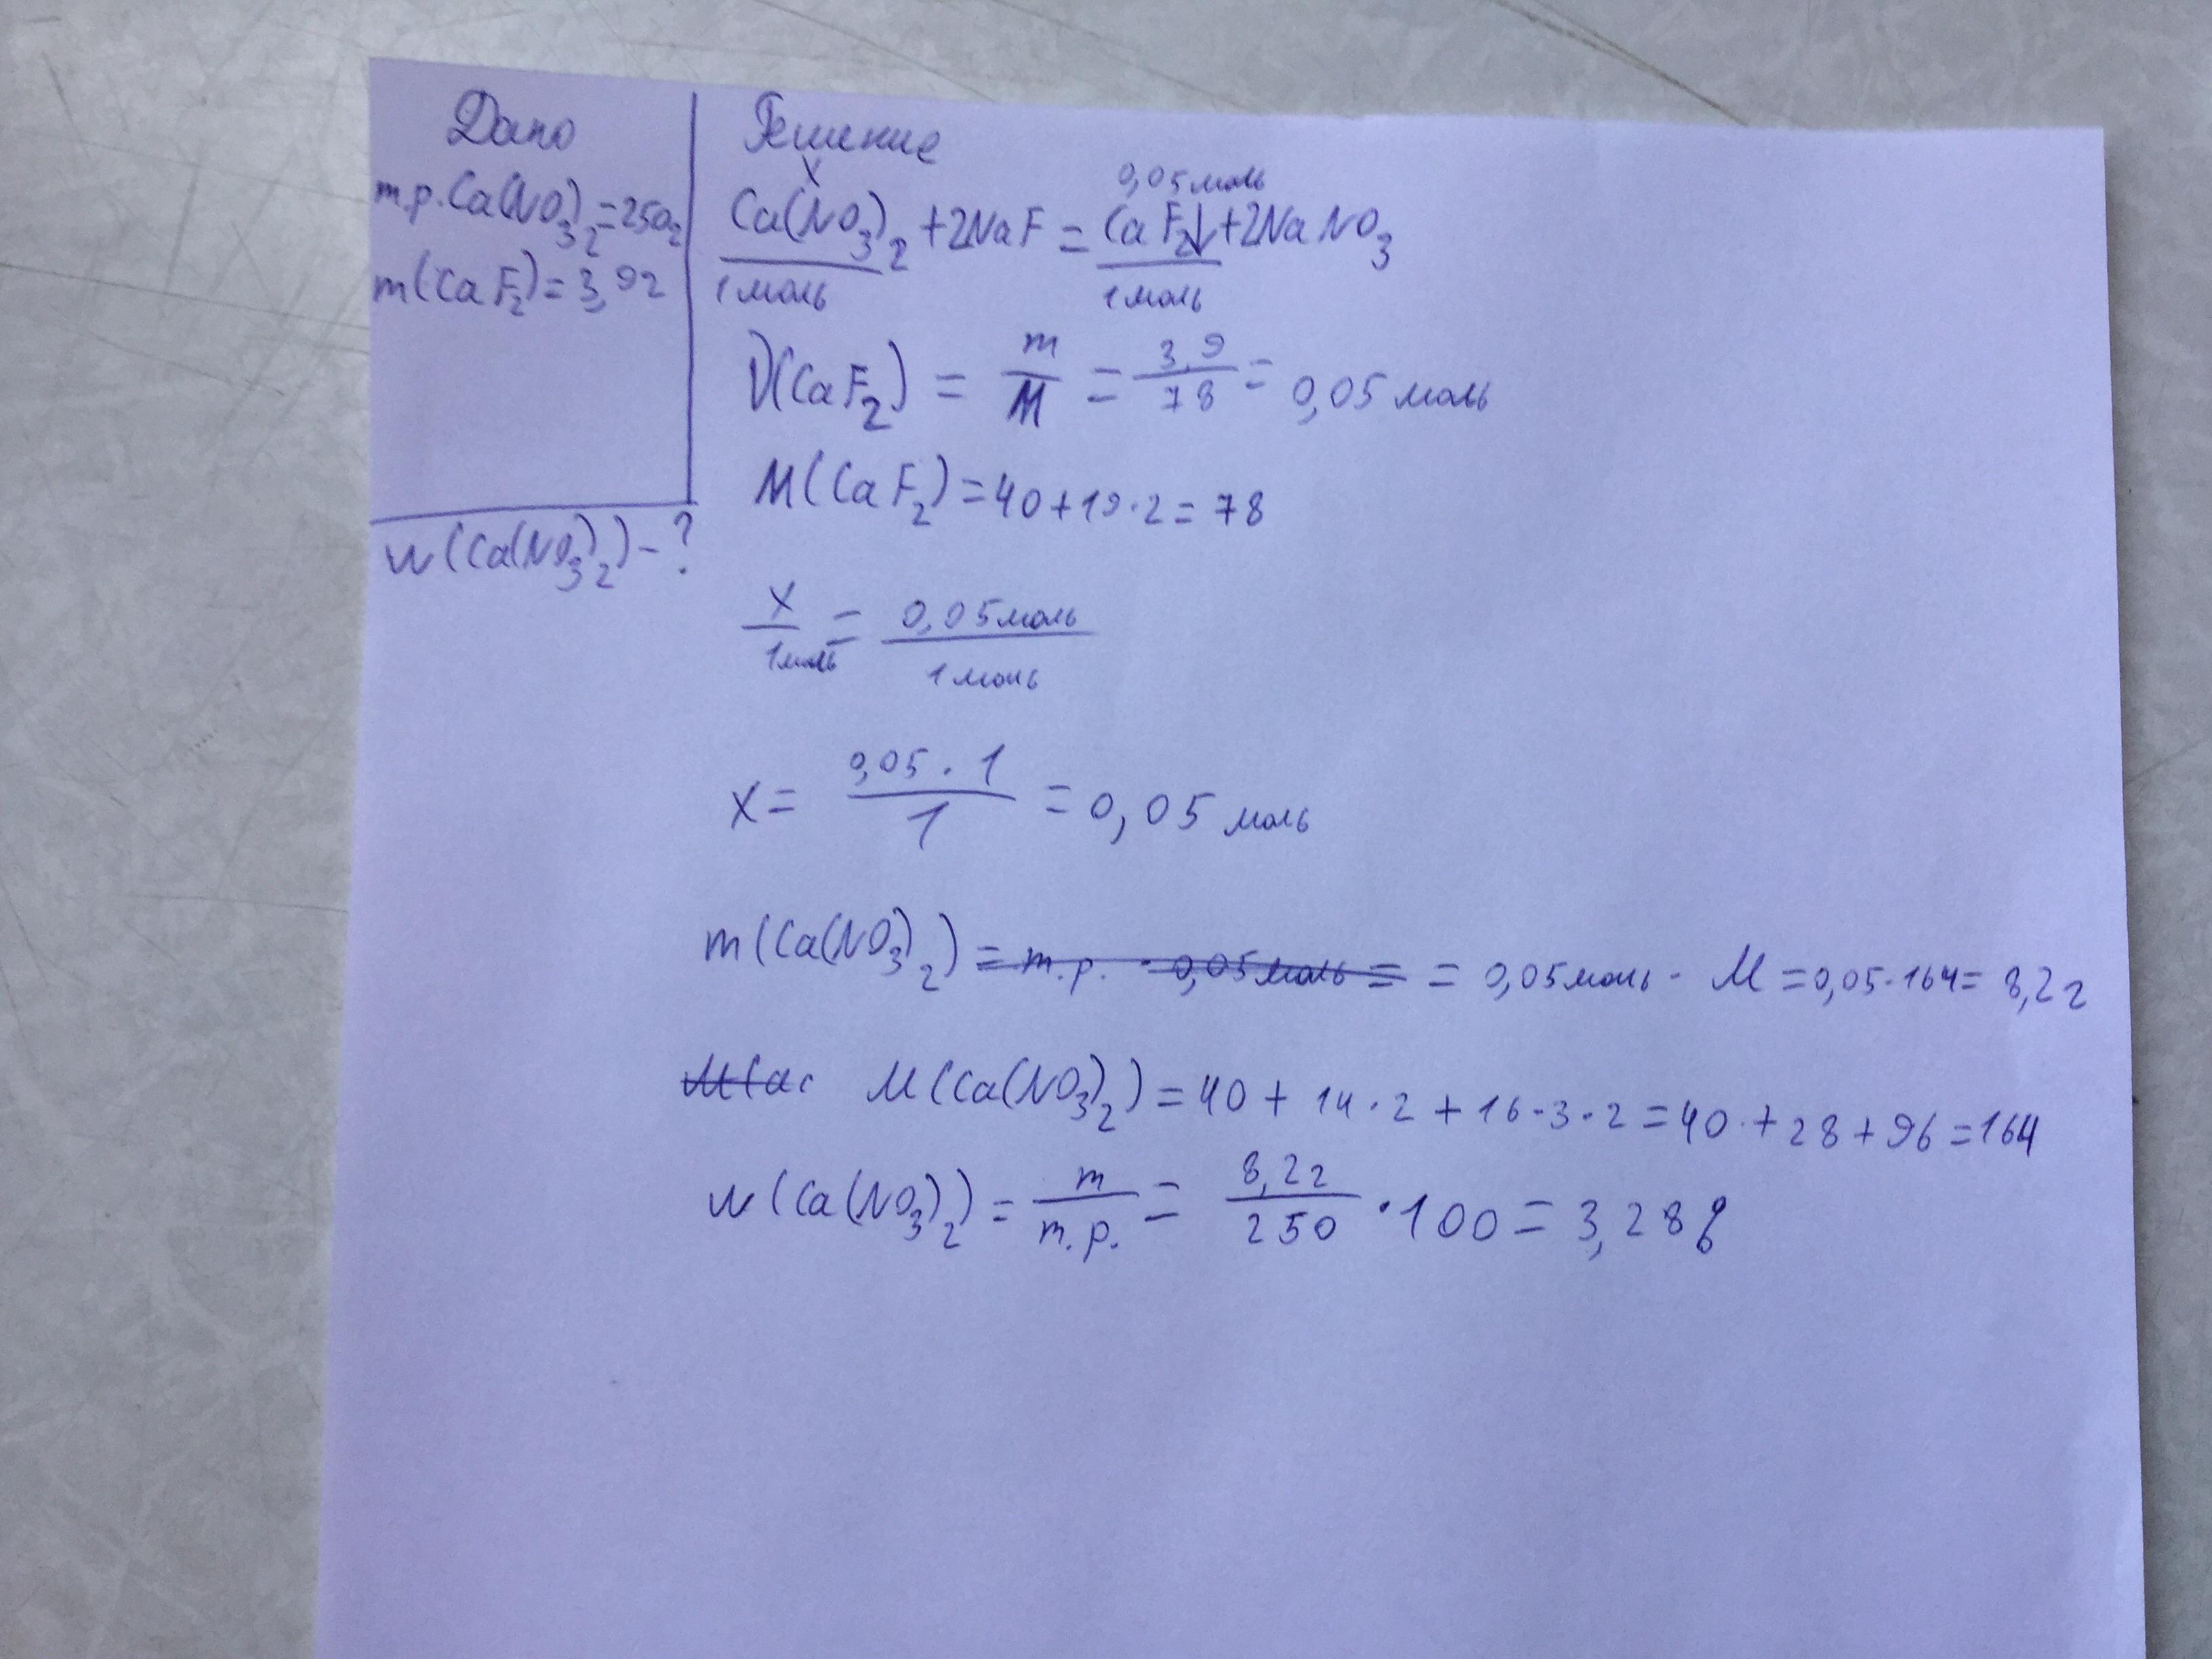 Дано
m.р. Ca(NO3)2=250г
m(CaF2)=3,9г
w(Ca(NO3)2)-?
Решение
x 0,05 моль
Ca(NO3)2+2NaF=CaF2↓+2NaNO3
1 моль 1 моль
ν(CaF2) = m/M = 3,9/78 = 0,05 моль
M(CaF2)=40+19·2=78
x/1моль = 0,05моль/1моль
x= 0,05·1/1 =0,05 моль
m(Ca(NO3)2) = m.р. · 0,05моль = = 0,05моль · M =0,05·164= 8,2г
M(Ca M(Ca(NO3)2)=40+14·2+16·3·2=40+28+96=164
w(Ca(NO3)2)= m/m.р. = 8,2г/250 ·100=3,28%